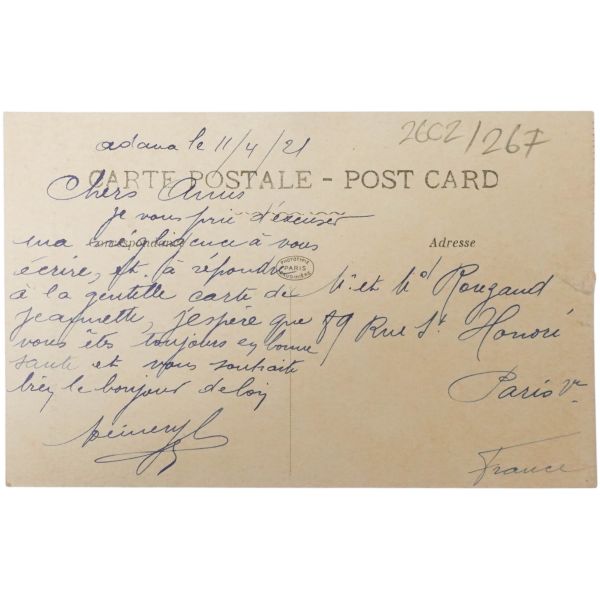 2602/267
adana le 11/4/21
CARTE POSTALE - POST CARD
Chers Amis
je vous prie d'excuser
ma négligence à vous
Correspondance
Adresse
écrire, et à répondre
PHOTOTYPIE
PARIS
à la gentille carte de
Jeannette, j'espère que
vous êtes toujours en bonne
santé et vous souhaite
bien le bonjour de loin
Mr et Md Rougaud
89 Rue St Honoré
Paris
France